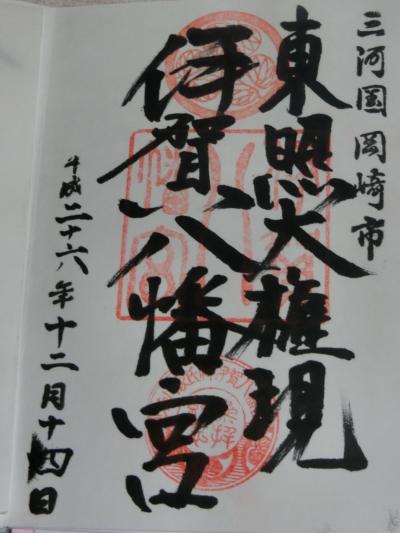 三河国岡崎市
東照大権現
伊賀八幡宮
平成二十六年十二月十四日